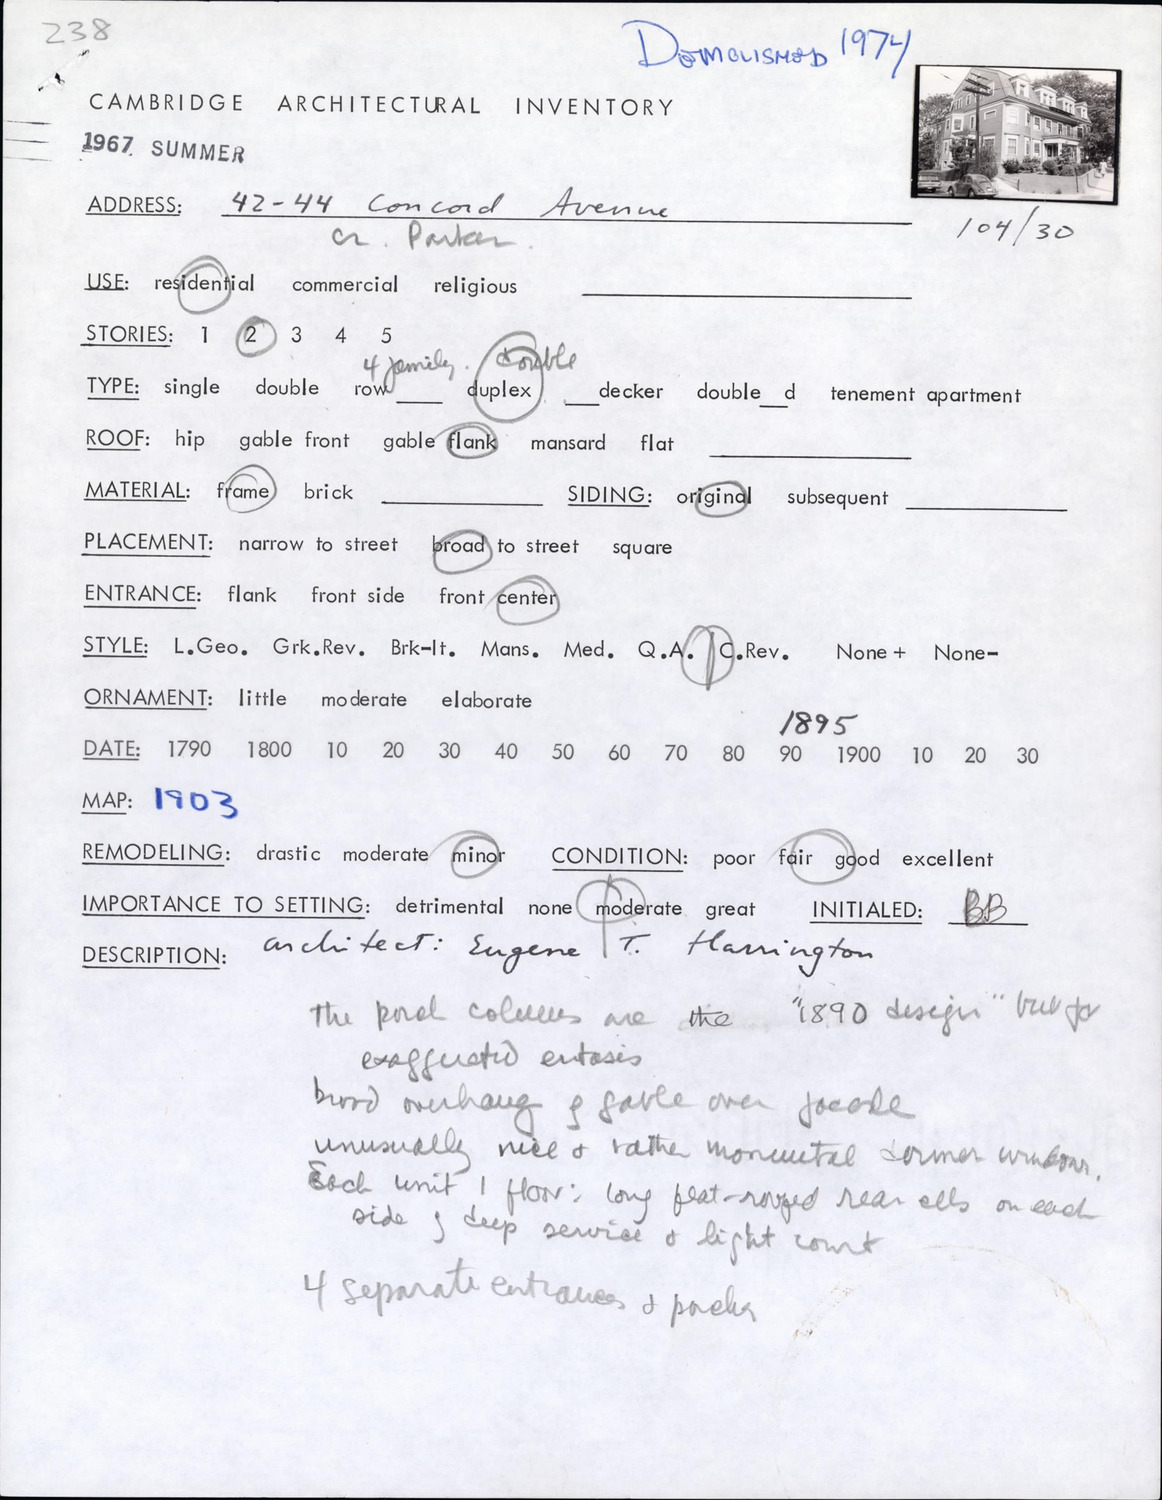 238
DEMOLISHED 1974
CAMBRIDGE ARCHITECTURAL INVENTORY
1967 SUMMER
ADDRESS: 42-44 Concord Avenue
104/30
cr. Parker.
USE: residential commercial religious
STORIES: 1 2 3 4 5
4 family. double
TYPE: single double row____ duplex ___decker double__d tenement apartment
ROOF: hip gable front gable flank mansard flat
MATERIAL: frame brick SIDING: original subsequent
PLACEMENT: narrow to street broad to street square
ENTRANCE: flank front side front center
STYLE: L.Geo. Grk.Rev. Brk-It. Mans. Med. Q.A. C.Rev. None + None-
ORNAMENT: little moderate elaborate
1895
DATE: 1790 1800 10 20 30 40 50 60 70 80 90 1900 10 20 30
MAP: 1903
REMODELING: drastic moderate minor CONDITION: poor fair good excellent
IMPORTANCE TO SETTING: detrimental none moderate great INITIALED: BB
DESCRIPTION: architect: Eugene T. Harrington
The porch columns are the "1890 design" but for
exaggerated entasis
broad overhang of gable over facade
unusually nice & rather monumental dormer windows.
Each unit 1 floor; long flat-roofed rear ells on each
side of deep service & light court
4 separate entrances & porches